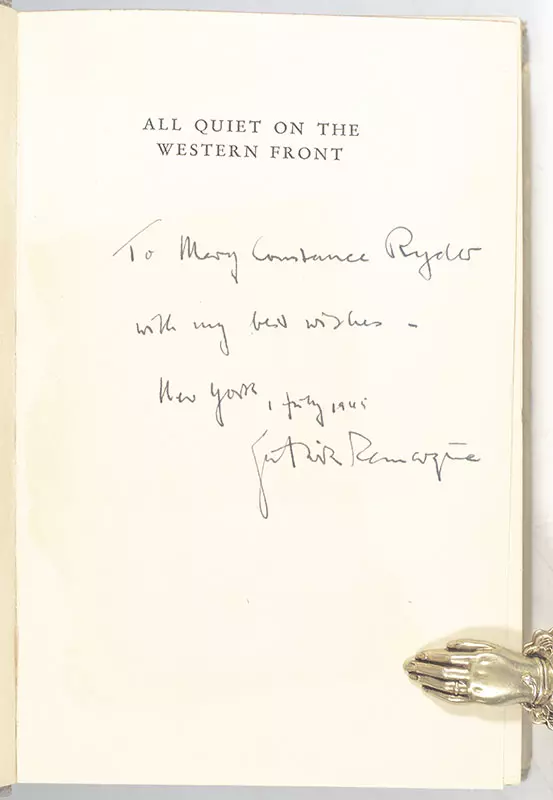 ALL QUIET ON THE
WESTERN FRONT
To Mary Constance Ryder
with my best wishes -
New York, 1 July 1945
Erich Maria Remarque